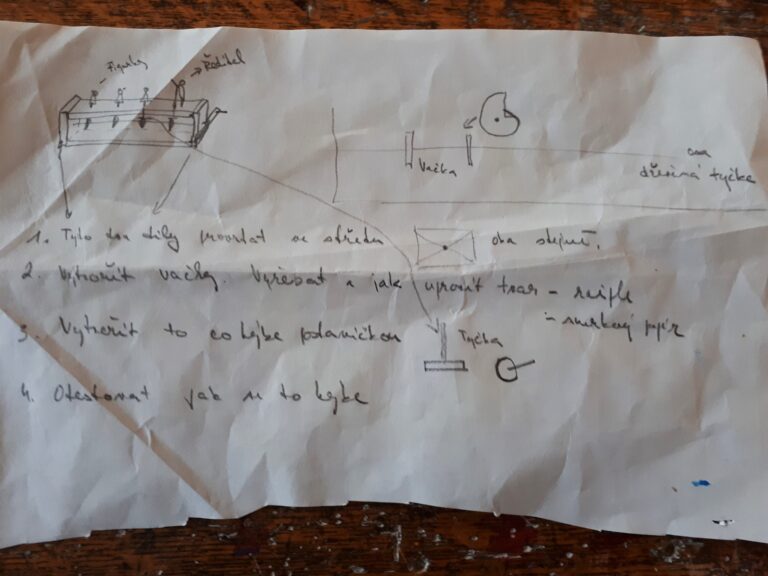 Figurky
Ředitel
Vačka
osa
dřevěná tyčka
1. Tyto dva díly provrtat ve středu oba stejně.
2. Vytvořit vačky. Vyřezat a jak upravit tvar - rašple
- smirkový papír
3. Vytvořit to co hejbe postavičkou
Tyčka
4. Otestovat jak se to hejbe